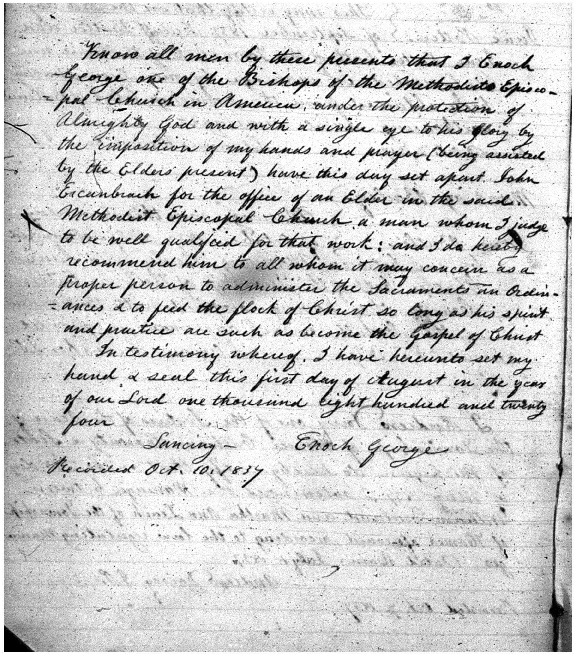 Know all men by these presents that I Enoch
George one of the Bishops of the Methodist Episco-
-pal Church in America, under the protection of
Almighty God and with a single eye to his glory by
the imposition of my hands and prayer (being assisted
by the Elders present) have this day set apart John
Escanbrach for the office of an Elder in the said
Methodist Episcopal Church a man whom I judge
to be well qualified for that work; and I do hereby
recommend him to all whom it may concern as a
proper person to administer the Sacraments an Ordin-
-ances & to feed the flock of Christ so long as his spirit
and practice are such as become the Gospel of Christ
In testimony whereof, I have hereunto set my
hand & seal this first day of August in the year
of our Lord one thousand eight hundred and twenty
four
Lansing – Enoch George
Recorded Oct. 10, 1837